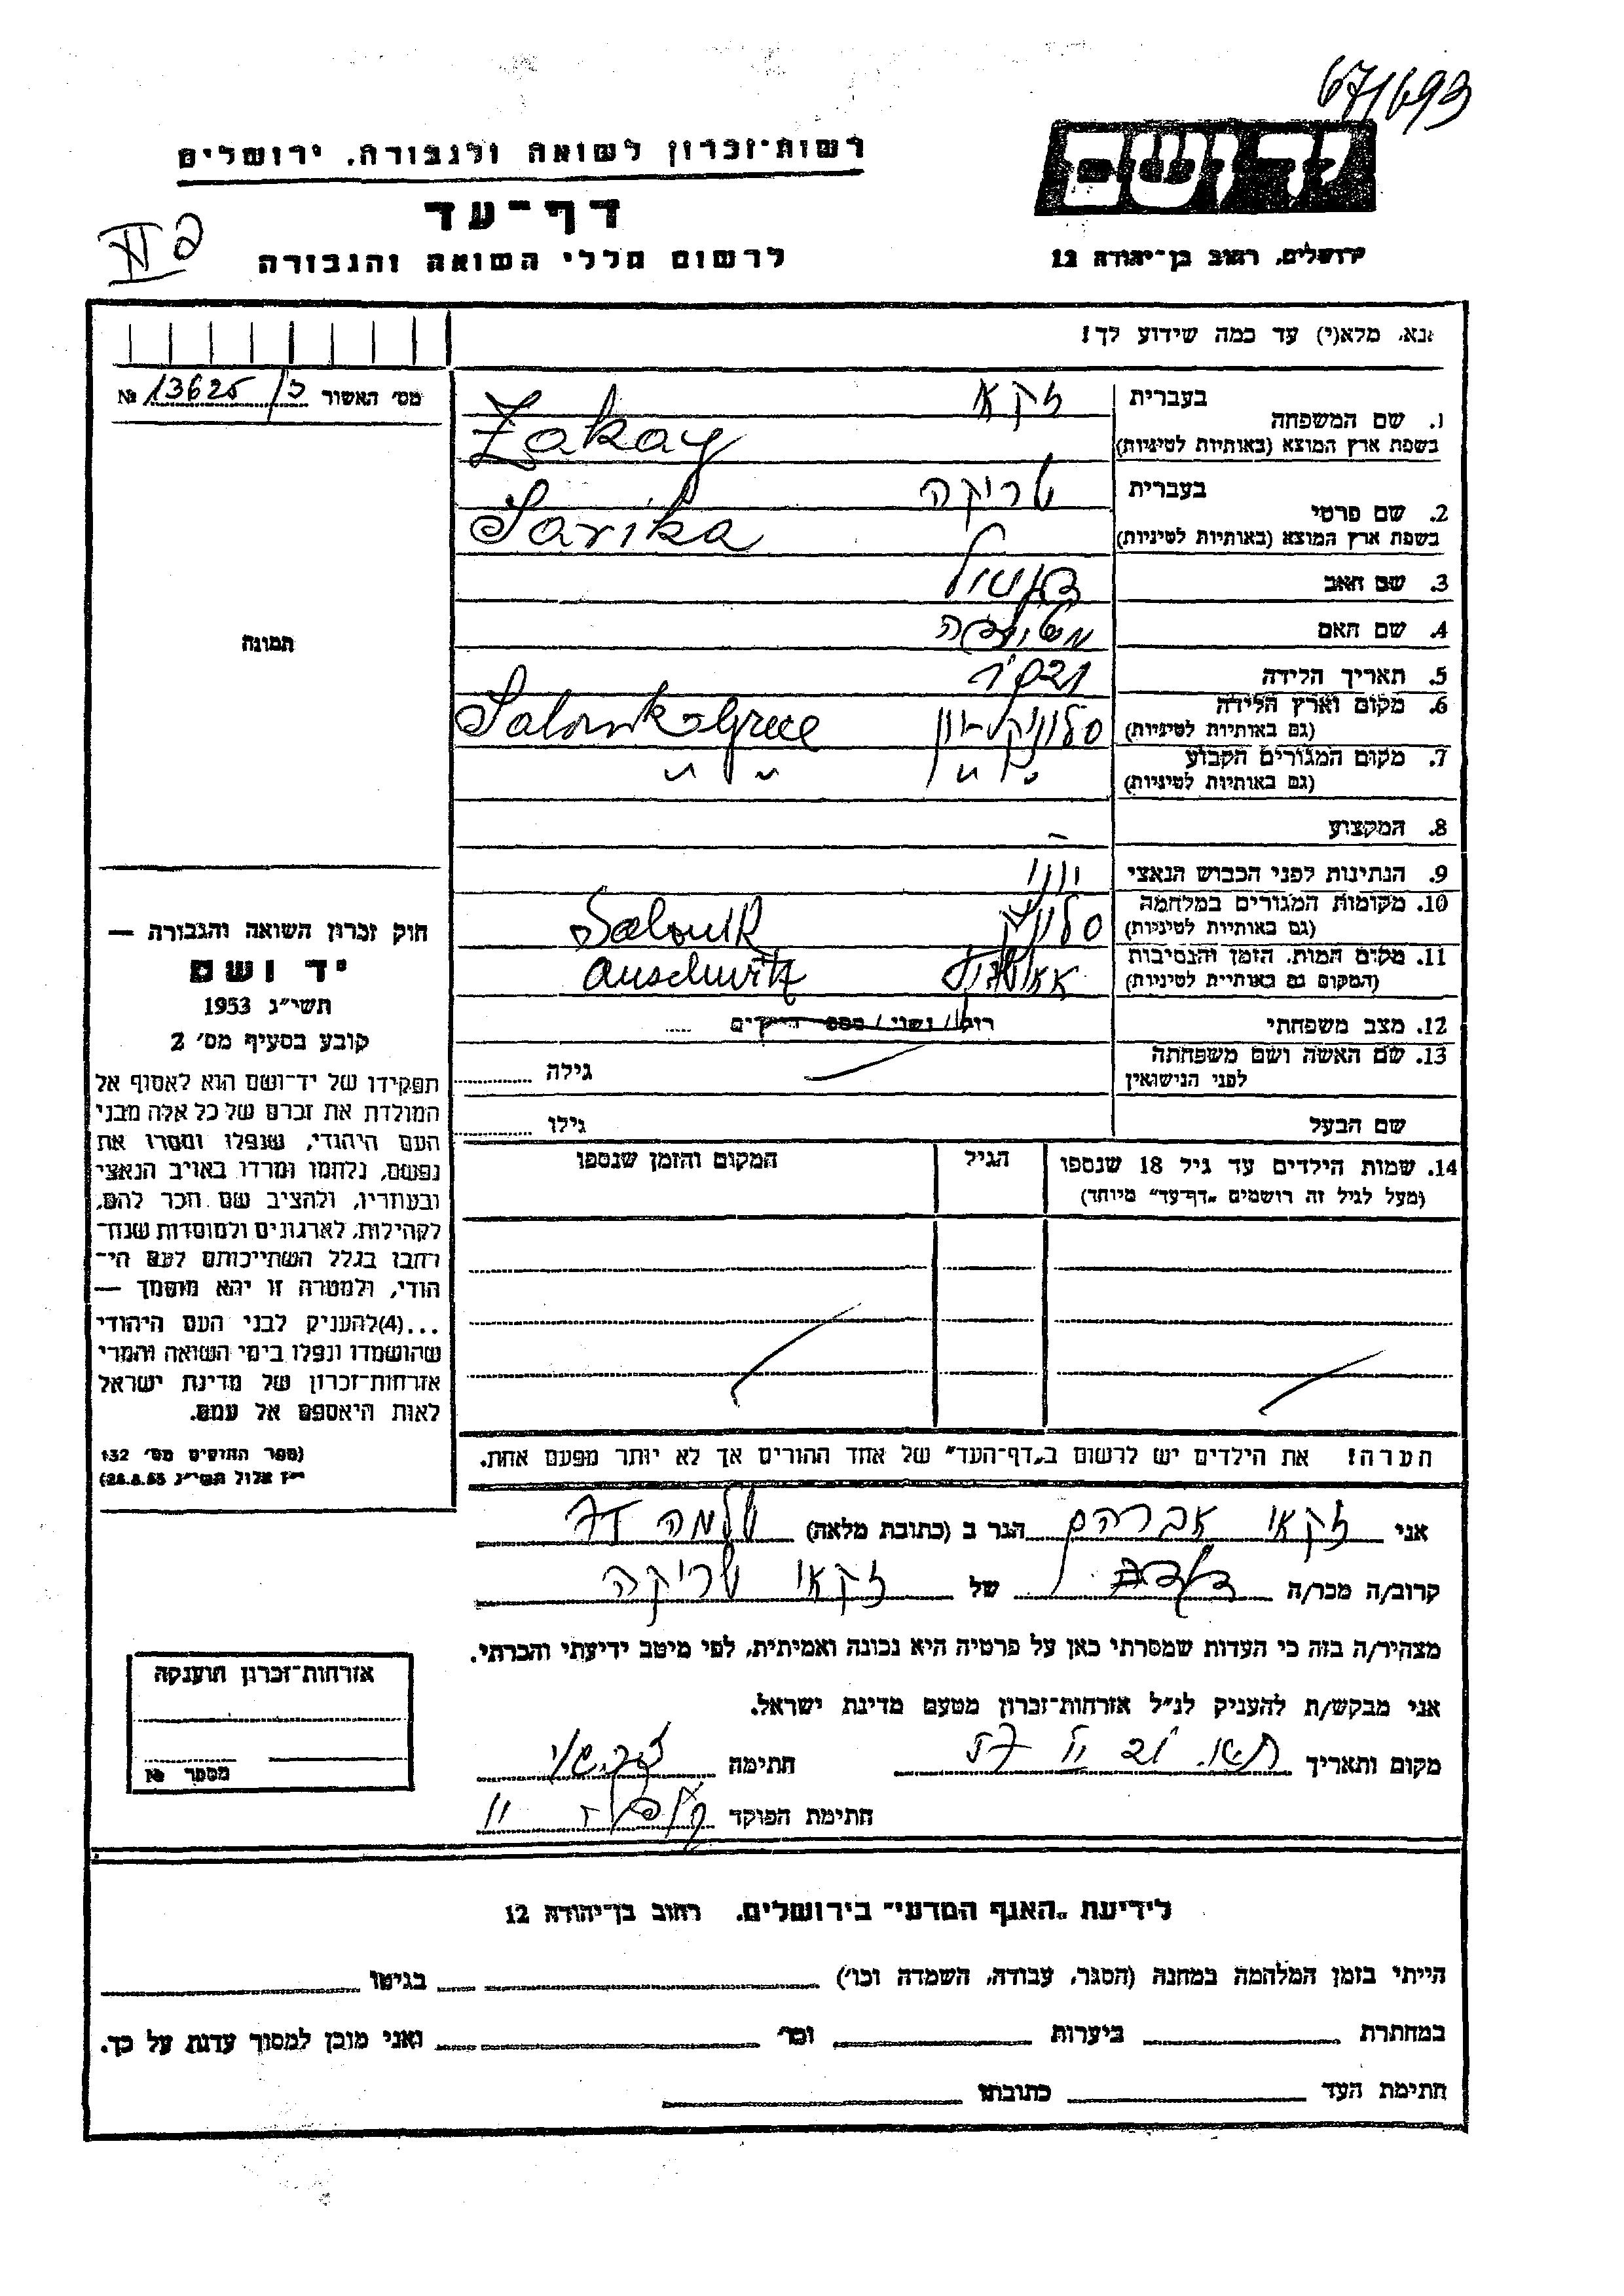 67/693
רשות-זכרון לשואה ולגבורה, ירושלים
דף-עד
לרשום חללי השואה והגבורה
ידושם
ירושלים, רחוב בן-יהודה 12
נא, מלא(י) עד כמה שידוע לך!
מס׳ האשור 13625/כ №
תמונה
1. שם המשפחה
בעברית זקא
בשפת ארץ המוצא (באותיות לטיניות) Zakay
2. שם פרטי
בעברית שריקה
בשפת ארץ המוצא (באותיות לטיניות) Sarika
3. שם האב
4. שם האם
5. תאריך הלידה
6. מקום וארץ הלידה
(גם באותיות לטיניות) סלוניקי יון Salonik-Grece
7. מקום המגורים הקבוע
(גם באותיות לטיניות) " " " "
8. המקצוע -
9. הנתינות לפני הכבוש הנאצי יונית
10. מקומות המגורים במלחמה
(גם באותיות לטיניות) סלוניק Salonik
11. מקום המות, הזמן והנסיבות
(המקום גם באותיית לטיניות) אאושוויץ Auschwitz
12. מצב משפחתי רווק/נשוי/מספר הילדים .....
13. שם האשה ושם משפחתה
לפני הנישואין גילה
שם הבעל גילו
14. שמות הילדים עד גיל 18 שנספו הגיל המקום והזמן שנספו
(מעל לגיל זה רושמים „דף-עד" מיוחד)
חוק זכרון השואה והגבורה —
יד ושם
תשי״ג 1953
קובע בסעיף מס׳ 2
תפקידו של יד-ושם הוא לאסוף אל
המולדת את זכרם של כל אלה מבני
העם היהודי, שנפלו ומסרו את
נפשם, נלחמו ומרדו באויב הנאצי
ובעוזריו, ולהציב שם וזכר להם,
לקהילות, לארגונים ולמוסדות שנח-
רבו בגלל השתייכותם לעם הי-
הודי, ולמטרה זו יהא מוסמך —
...(4)להעניק לבני העם היהודי
שהושמדו ונפלו בימי השואה והמרי
אזרחות-זכרון של מדינת ישראל
לאות היאספם אל עמם.
(ספר החוקים מס׳ 132
י״ז אלול תשי״ג 28.8.53)
הערה! את הילדים יש לרשום ב„דף-העד" של אחד ההורים אך לא יותר מפעם אחת.
אני זקאי אברהם הגר ב (כתובת מלאה) שלמה
קרוב/ה מכר/ה של זקאי שריקה
מצהיר/ה בזה כי העדות שמסרתי כאן על פרטיה היא נכונה ואמיתית, לפי מיטב ידיעתי והכרתי.
אני מבקש/ת להעניק לנ״ל אזרחות-זכרון מטעם מדינת ישראל.
מקום ותאריך חתימה
חתימת הפוקד
אזרחות-זכרון הוענקה
מספר №
לידיעת „האגף המדעי" בירושלים, רחוב בן-יהודה 12
הייתי בזמן המלהמה במחנה (הסגר, עבודה, השמדה וכו׳) בגיטו
במחתרת ביערות וכו׳ ואני מוכן למסור עדות על כך.
חתימת העד כתובתו